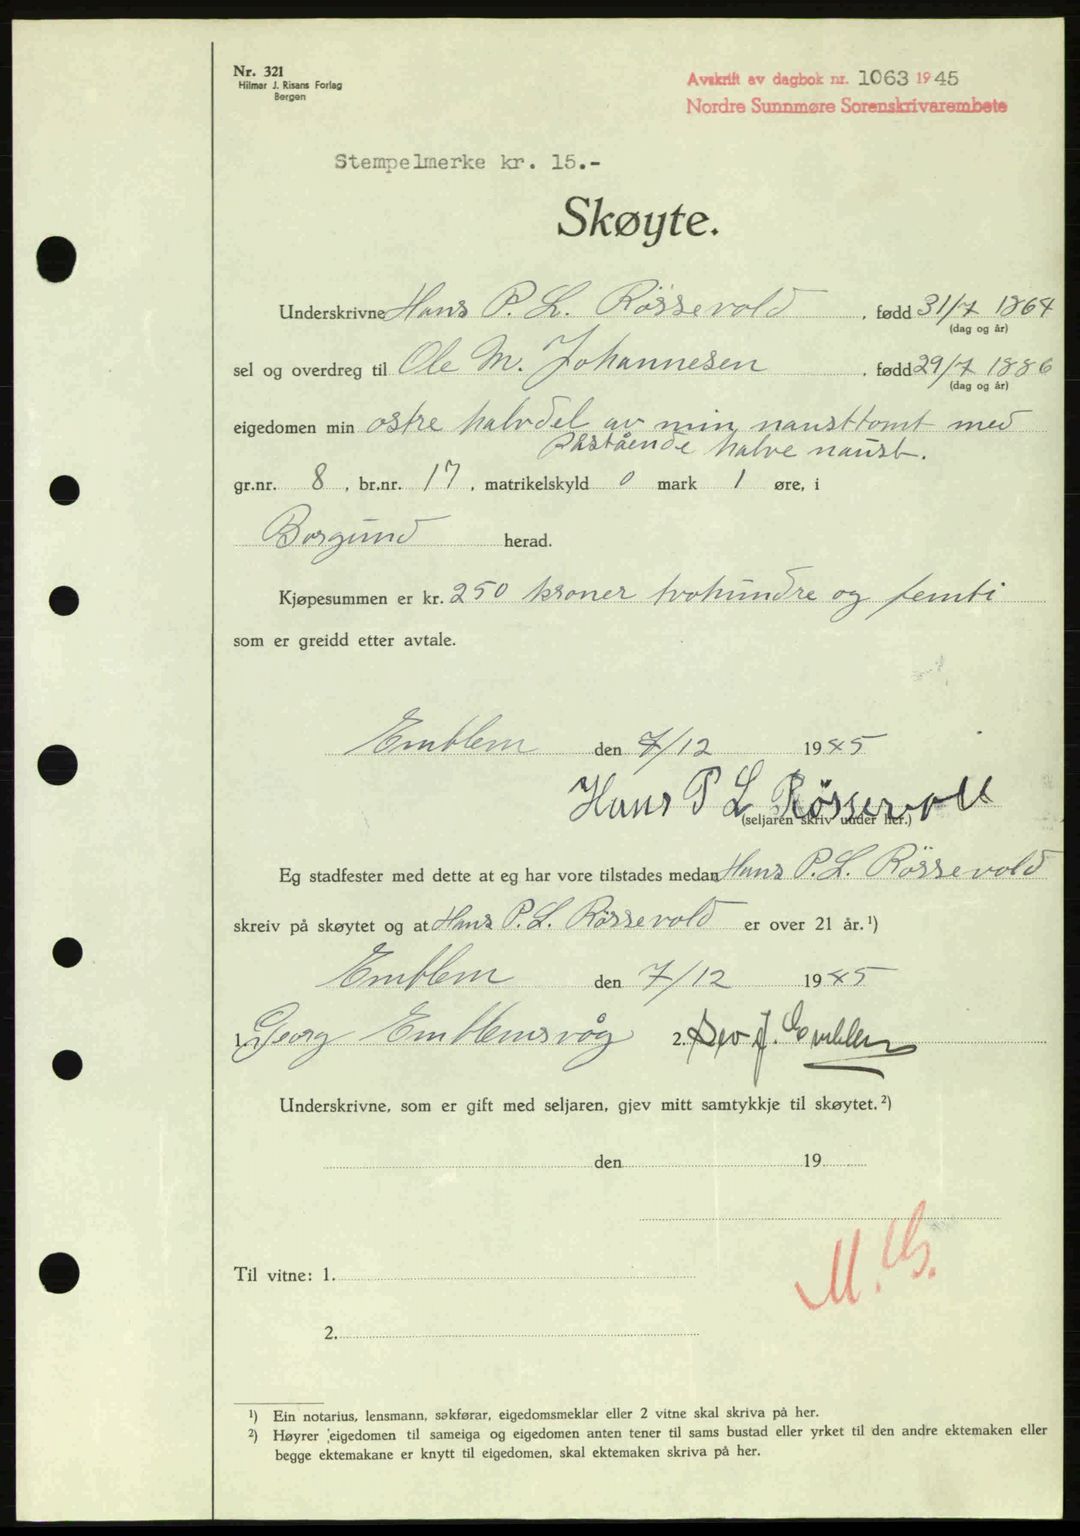 Nr. 321
Hilmar J. Risans Forlag
Bergen
Avskrift av dagbok nr. 1063 1945
Nordre Sunnmøre Sorenskrivarembete
Stempelmerke kr. 15.-
Skøyte.
Underskrivne Hans P. L. Rössevold , fødd 31/7 1864
(dag og år)
sel og overdreg til Ole M. Johannesen , fødd 29/7 1886
(dag og år)
eigedomen min østre halvdel av min nausttomt med
påstående halve naust.
gr.nr. 8 , br.nr. 17 , matrikelskyld 0 mark 1 øre, i
Borgund herad.
Kjøpesummen er kr. 250 kroner tvohundre og femti
som er greidd etter avtale.
Emblem den 7/12 1945
Hans P L Rössevold
(seljaren skriv under her.)
Eg stadfester med dette at eg har vore tilstades medan Hans P. L. Rössevold
skreiv på skøytet og at Hans P. L. Rössevold er over 21 år.¹)
Emblem den 7/12 1945
1. Georg Emblemsvåg 2. J. Emblem
Underskrivne, som er gift med seljaren, gjev mitt samtykkje til skøytet.²)
den 19
Til vitne: 1.
2.
¹) Ein notarius, lensmann, sakførar, eigedomsmeklar eller 2 vitne skal skriva på her.
²) Høyrer eigedomen til sameiga og eigedomen anten tener til sams bustad eller yrket til den andre ektemaken eller
begge ektemakane er knytt til eigedomen, skal ektemaken skriva på her.